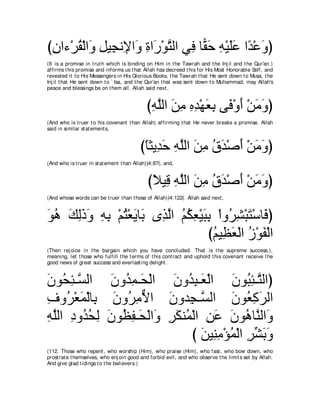 (وَعْدًا عَلَيْهِ حَقًّا فِي التَّوْرَاةِ وَالإِنجِيلِ وَالْقُرْءانِ)
(It is a promise in truth which is binding on Him in the Tawrah and the Injil and the Qur'an.)
affirms this promise and informs us that Allah has decreed this for His Most Honorable Self, and
revealed it to His Messengers in His Glorious Books, the Tawrah that He sent down to Musa, the
Injil that He sent down to `Isa, and the Qur'an that was sent down to Muhammad, may Allah's
peace and blessings be on them all. Allah said next,
(وَمَنْ أَوْفَى بِعَهْدِهِ مِنَ اللَّهِ)
(And who is truer to his covenant than Allah) affirming that He never breaks a promise. Allah
said in similar statements,
(وَمَنْ أَصْدَقُ مِنَ اللَّهِ حَدِيثاً)
(And who is truer in statement than Allah)[4:87], and,
(وَمَنْ أَصْدَقُ مِنَ اللَّهِ قِيلاً)
(And whose words can be truer than those of Allah)[4:122]. Allah said next,
(فَاسْتَبْشِرُواْ بِبَيْعِكُمُ الَّذِى بَايَعْتُمْ بِهِ وَذَلِكَ هُوَ
الْفَوْزُ الْعَظِيمُ)
(Then rejoice in the bargain which you have concluded. That is the supreme success.),
meaning, let those who fulfill the terms of this contract and uphold this covenant receive the
good news of great success and everlasting delight.
(التَّـئِبُونَ الْعَـبِدُونَ الْحَـمِدُونَ السَّـئِحُونَ
الرَكِعُونَ السَّـجِدونَ الاٌّمِرُونَ بِالْمَعْرُوفِ
وَالنَّاهُونَ عَنِ الْمُنكَرِ وَالْحَـفِظُونَ لِحُدُودِ اللَّهِ
وَبَشِّرِ الْمُؤْمِنِينَ )
(112. Those who repent, who worship (Him), who praise (Him), who fast, who bow down, who
prostrate themselves, who enjoin good and forbid evil, and who observe the limits set by Allah.
And give glad tidings to the believers.)